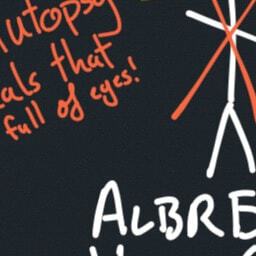 autopsy
als that
full of eyes!
ALBRE